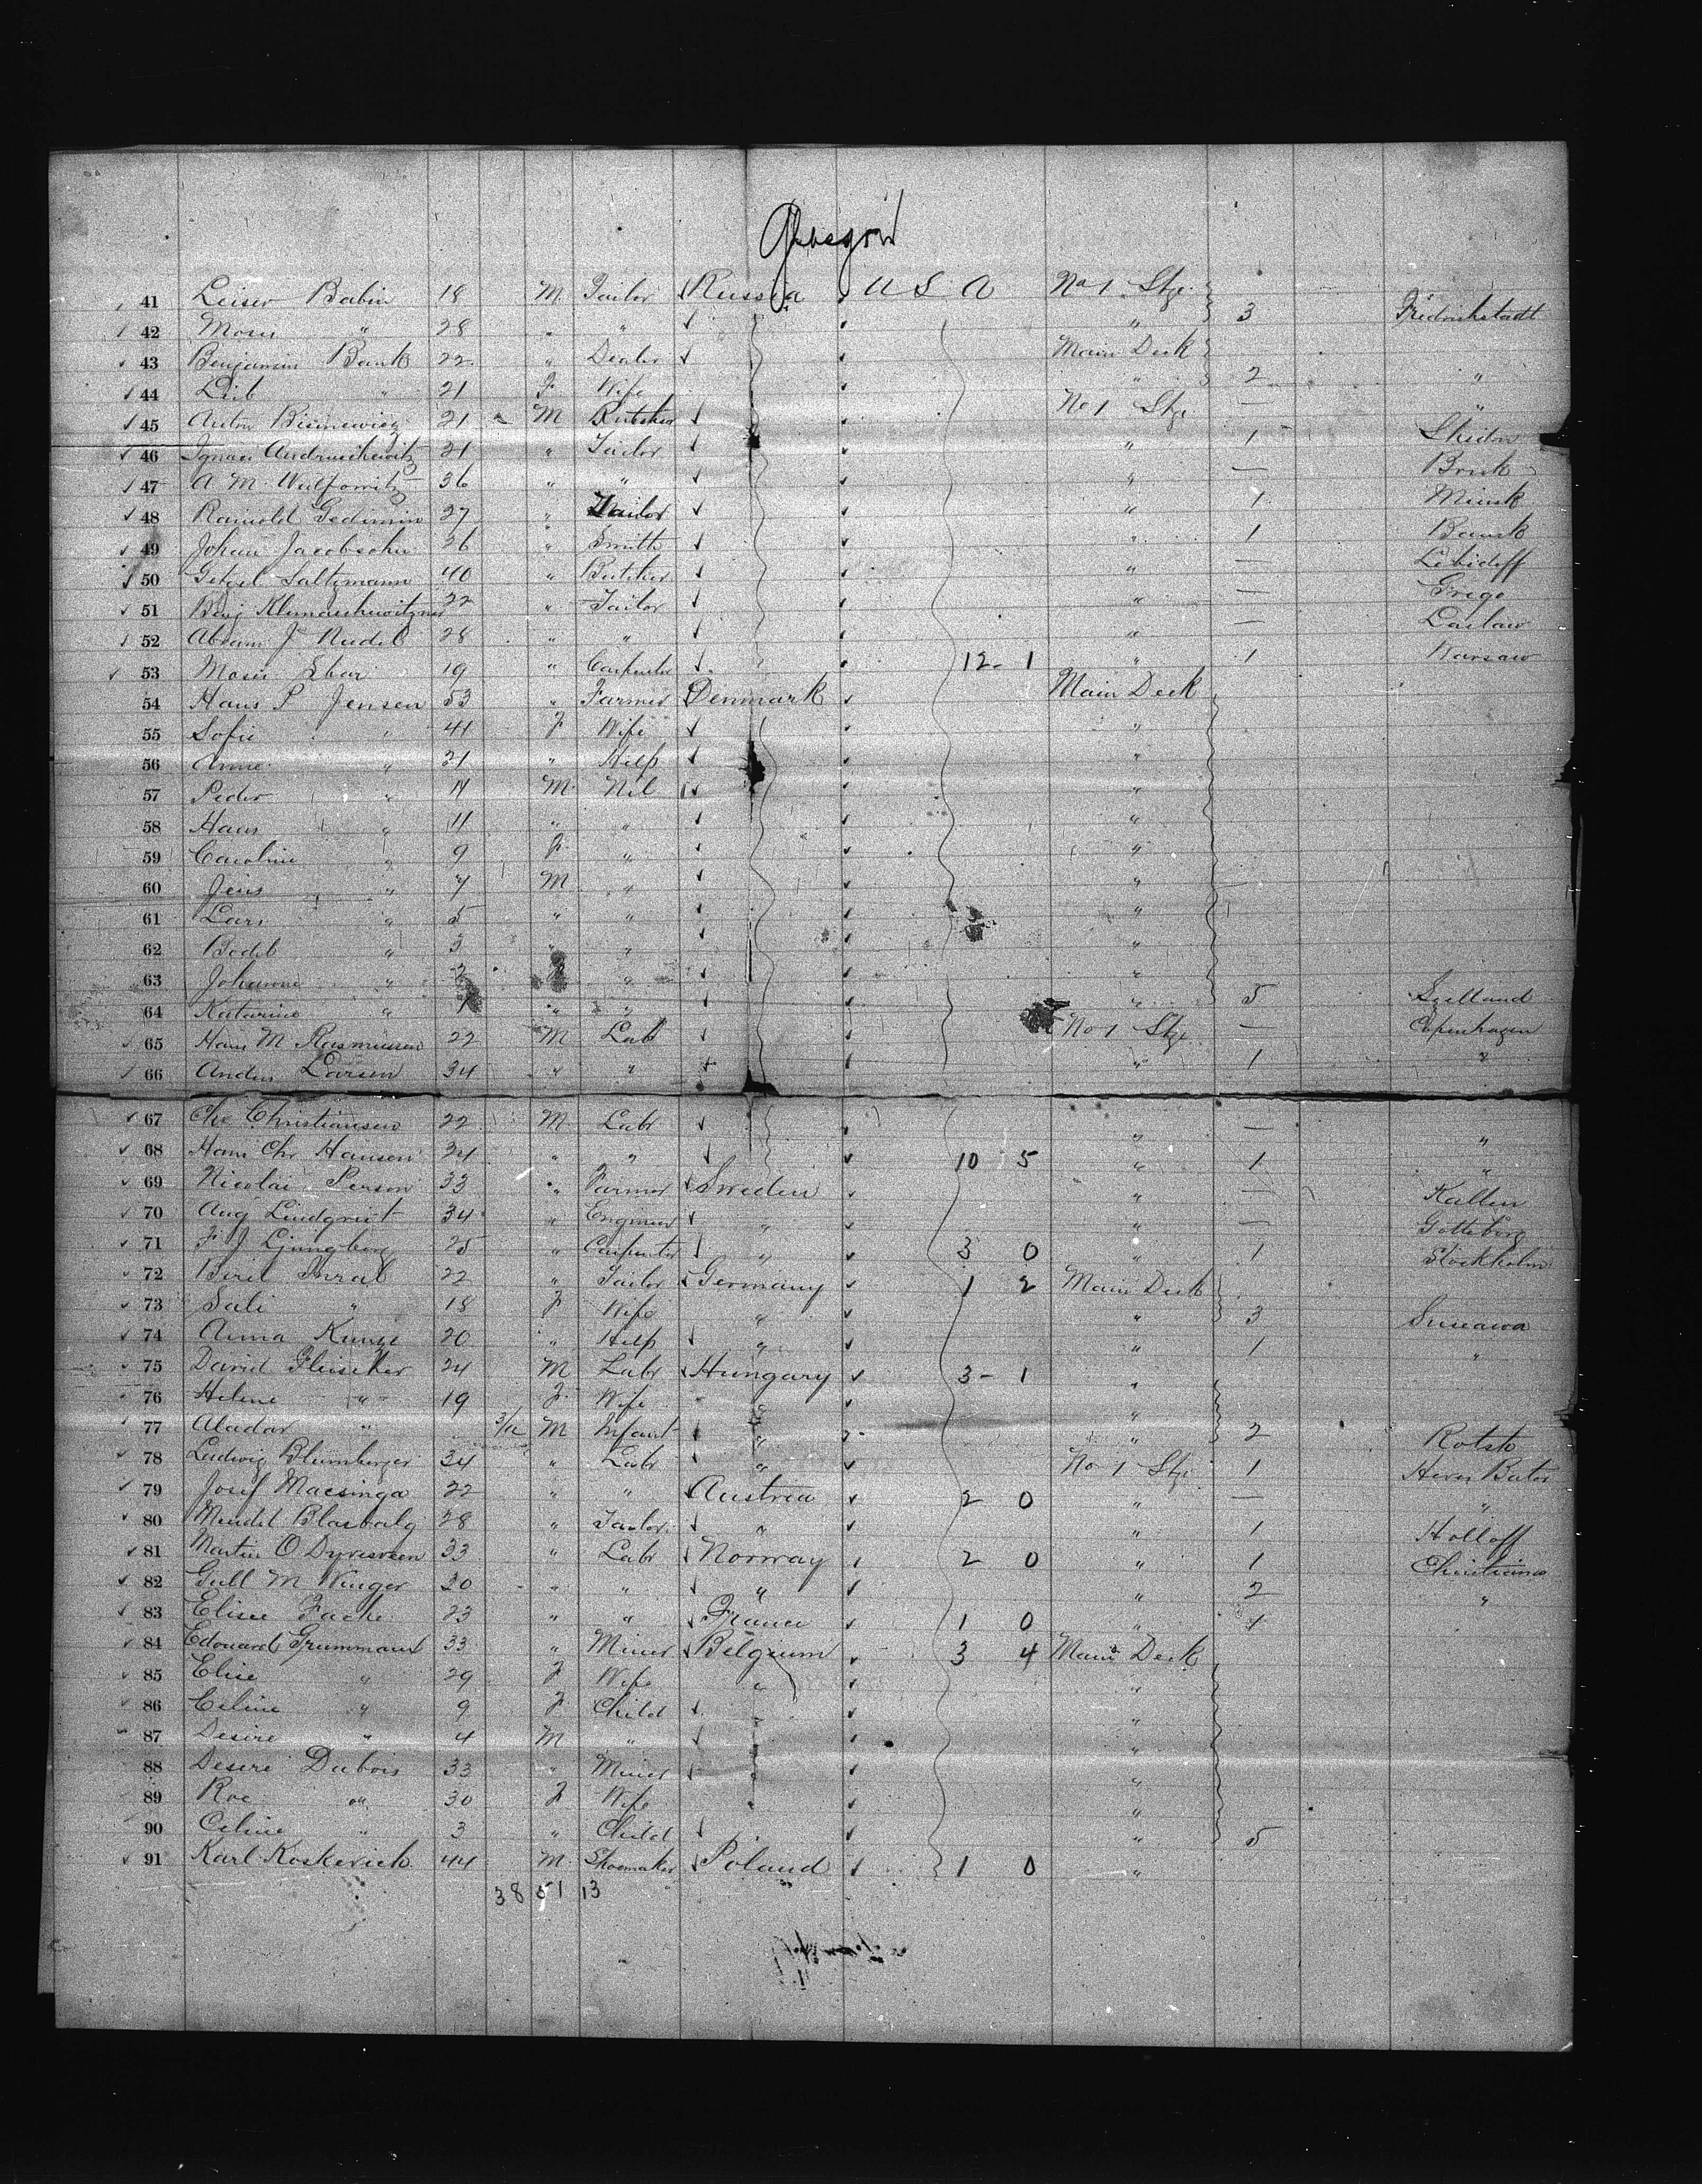 Glasgow
41 Leiser Babin 18 M Tailor Russia U S A No 1 Stge
42 Moses " 28 " " " 3 Fredrichstadt
43 Benjamin Bank 22 " Dealer Main Deck
44 Leib " 21 F Wife " 2 "
45 Anton Bisinewicz 21 M Butcher No 1 Stge — "
46 Ignaci Andruschewitz 21 " Tailor " 1
47 A M Wulfowitz 36 " " " —
48 Rainold Gedimin 27 " Tailor " 1 Minsk
49 Johan Jacobsohn 26 " Smith " 1 Bausk
50 Getzel Saltzmann 40 " Butcher " —
51 Benj 22 " Tailor " — Grego
52 Abram J Nudel 28 " " " —
53 Moses 19 " Carpenter 12 - 1 " 1 Warsaw
54 Hans P Jensen 53 " Farmer Denmark Main Deck
55 Sofie " 41 F Wife "
56 Anne " 21 " Help "
57 Peder " M Nil "
58 Hans " 11 " " "
59 Caroline " 9 F " "
60 Jens " 7 M " "
61 Lars " 5 " " "
62 Bodil " 3 " " "
63 Johanne " 2 F " "
64 Katarine " 1 " " " 5 Sjelland
65 Hans M Rasmussen 22 M Lab No 1 Stge — Copenhagen
66 Anders Larsen 34 " " " 1 "
67 Chr Christiansen 22 M Labr " — "
68 Hans Chr Hansen 24 " " 10 5 " 1 "
69 Nicolai Person 33 " Farmer Sweden " —
70 Aug Lindqvist 34 " Engineer " " — Gotteborg
71 F J Ljungberg 25 " Carpenter " 3 0 " 1 Stockholm
72 22 " Tailor Germany 1 2 Main Deck
73 Sali " 18 F Wife " " 3
74 Anna Kunze 20 " Help " " 1 "
75 David Fleischer 24 M Labr Hungary 3 - 1 "
76 Helene " 19 F Wife " "
77 Aladar " 3/12 M Infant " " 2
78 Ludwig Blumberger 34 " Labr " No 1 Stge 1
79 Josef Macsinga 22 " " Austria 2 0 " — "
80 Mendel Blasbalg 28 " Tailor " " 1 Holloff
81 Martin O Dyresveen 33 " Labr Norway 2 0 " 1 Christiana
82 Gull M Winger 20 " " " " 2 "
83 Elisee Fache 23 " " France 1 0 " 1
84 Edouard Grummaux 33 " Miner Belgium 3 4 Main Deck
85 Elise " 29 F Wife " "
86 Celine " 9 F Child "
87 Desire " 4 M " "
88 Desire Dubois 33 " Miner "
89 " 30 F Wife "
90 Celine " 3 " Child " 5
91 Karl Koskevich 44 M Shoemaker Poland 1 0 "
38 51 13